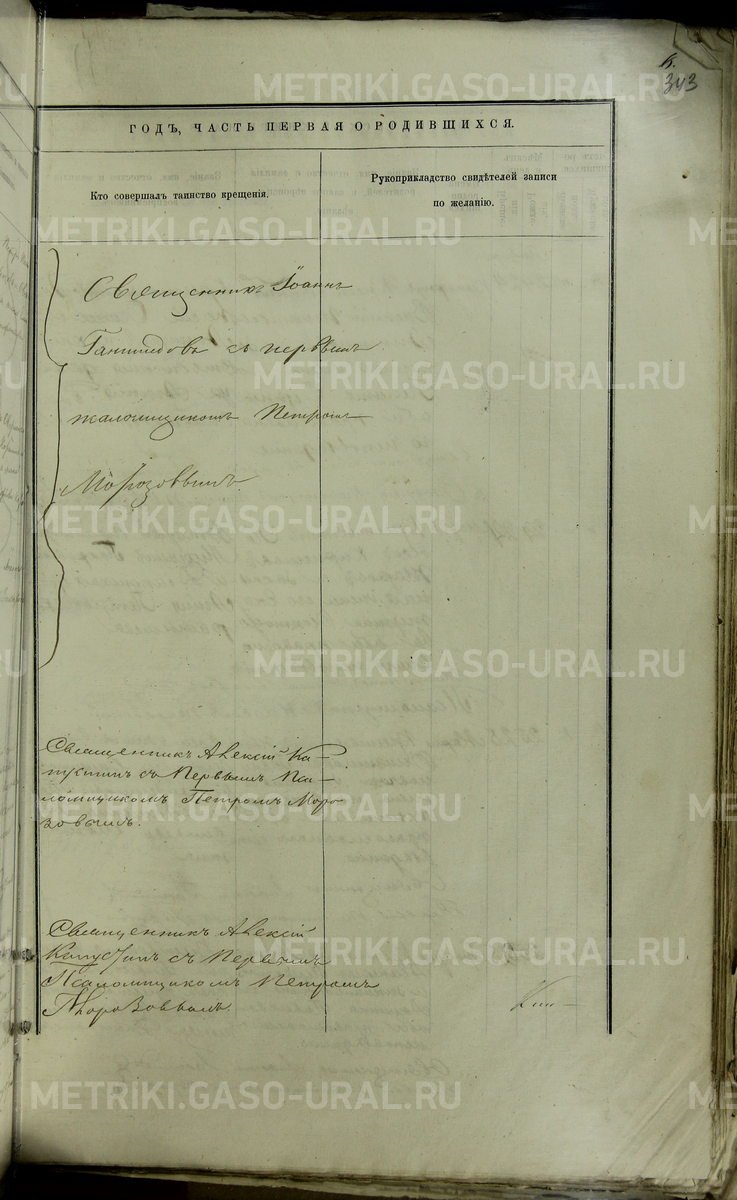 343
ГОДЪ, ЧАСТЬ ПЕРВАЯ О РОДИВШИХСЯ.
Кто совершалъ таинство крещенія.
Рукоприкладство свидѣтелей записи
по желанію.
Священникъ Іоаннъ
съ первымъ
псаломщикомъ Петромъ
Морозовымъ
Священникъ Алексій Ка-
пустинъ съ Первымъ Пса-
ломщикомъ Петромъ Моро
зовымъ.
Священникъ Алексій
Капустинъ съ Первымъ
Псаломщикомъ Петромъ
Морозовымъ.
METRIKI.GASO-URAL.RU